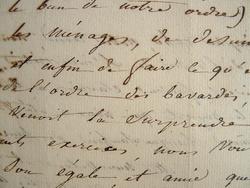 le bien de notre ordre)
les ménages, de
et enfin de faire le qu'
de l'ordre des bavardes
Venoit la surprendre
exercices nous Vou
Son égale et amie que